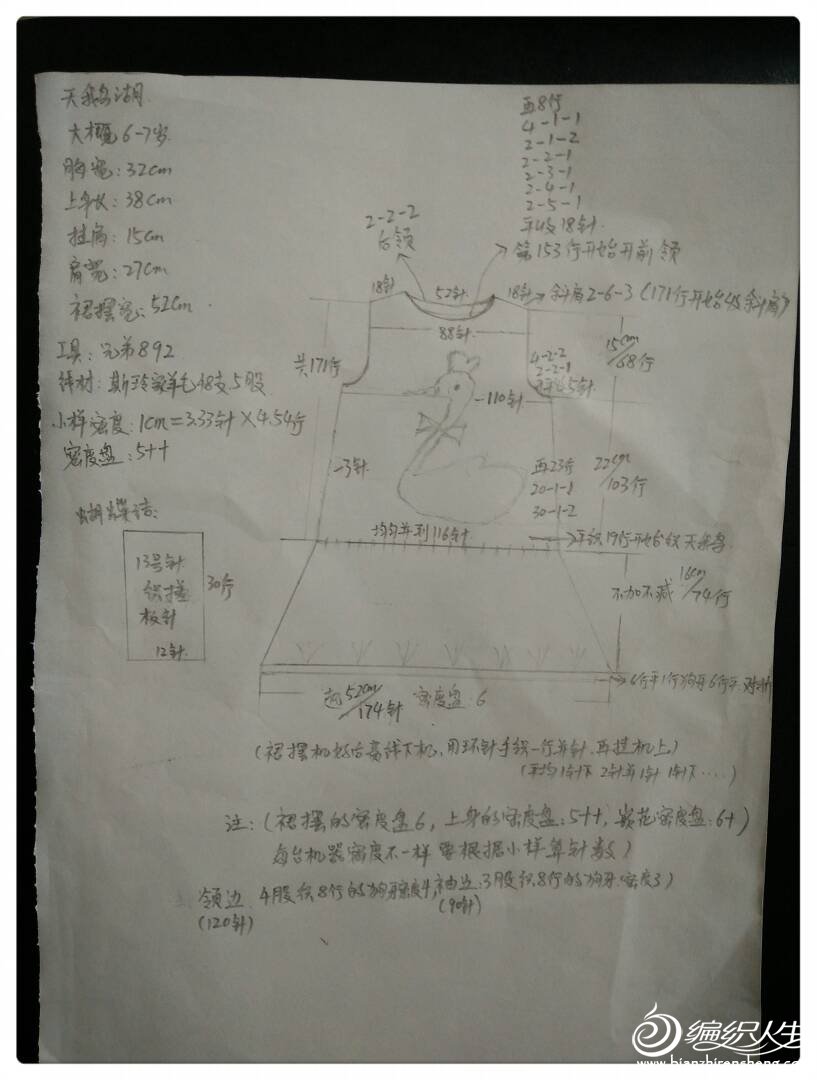 天鹅湖
大概6-7岁
胸宽:32cm
上身长:38cm
挂肩:15cm
肩宽:27cm
裙摆宽:52cm
工具:兄弟892
线材:斯玲家羊毛48支5股
小样密度:1cm=3.33针×4.54行
密度盘:5++
蝴蝶结:
13号针
织搓
板针
12针
30行
再8行
4-1-1
2-1-2
2-2-1
2-3-1
2-4-1
2-5-1
平收18针
第153行开始开前领
2-2-2
后领
18针
52针
18针
斜肩2-6-3(171行开始收斜肩)
88针
共171行
15cm/68行
4-2-2
2-2-1
平收5针
-110针
-3针
再23行
20-1-1
30-1-2
22cm/103行
均匀并到116针
平织19行开始织天鹅
不加不减
16cm/74行
6行平1行狗牙6行平 对折
起52cm/174针 密度盘:6
(裙摆机织后高针下机,用环针手织一行并针,再挂机上)
(平均1针下2针并1针 1针下....)
注:(裙摆的密度盘6,上身的密度盘:5++,嵌花密度盘:6+)
每台机器密度不一样 要根据小样算针数)
领边 4股织8行的狗牙密度4,袖边:3股织8行的狗牙.密度3)
(120针)
(90针)
编织人生
www.bianzhirensheng.com